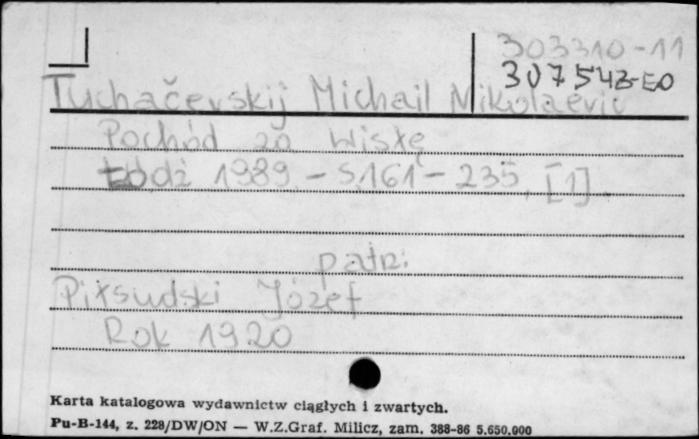 303310-11
307543-EO
Tuchačevskij Michail Nikolaevič
Pochód za Wisłę
Łódź 1989. - S.161-235, [1].
patrz:
Piłsudski Józef
Rok 1920
Karta katalogowa wydawnictw ciągłych i zwartych.
Pu-B-144, z. 228/DW/ON — W.Z.Graf. Milicz, zam. 388-86 5.650.000